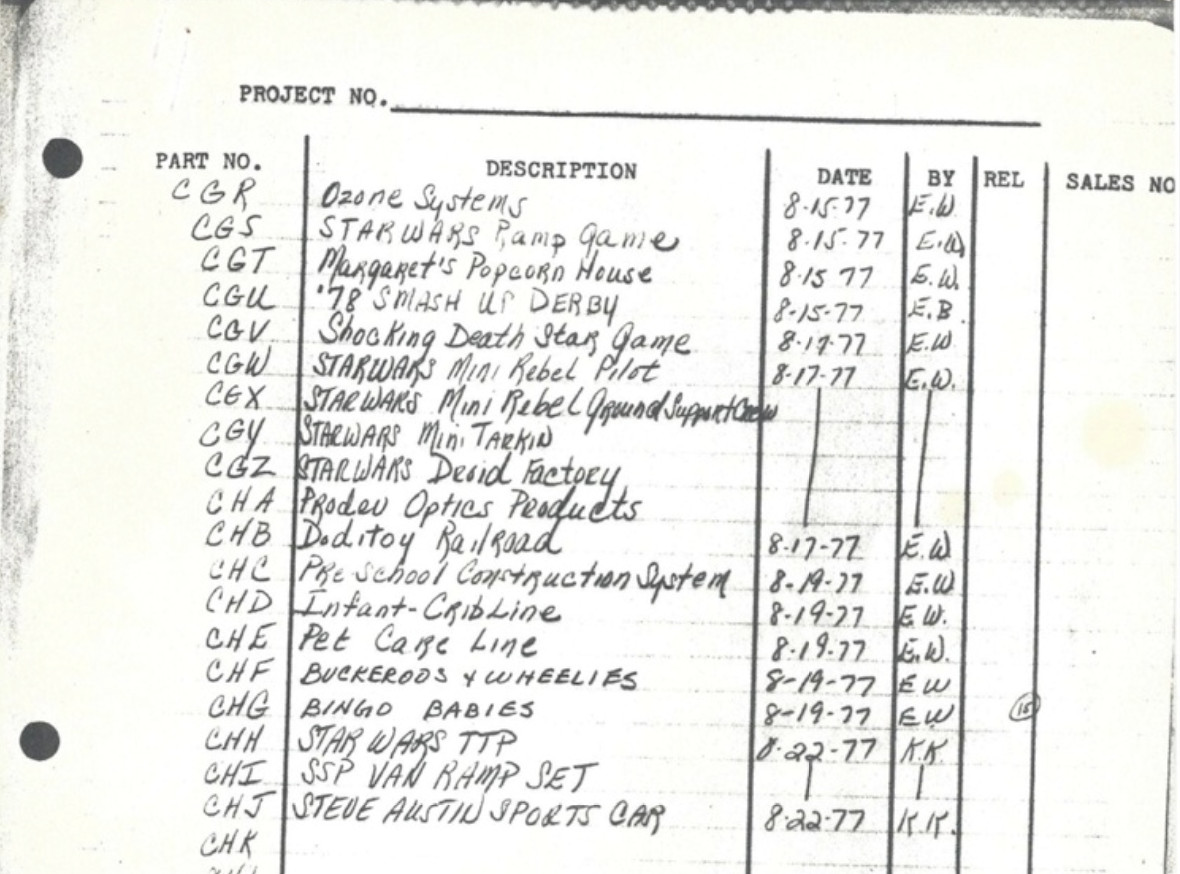 PROJECT NO.
PART NO. DESCRIPTION DATE BY REL SALES NO
CGR Ozone Systems 8-15-77 E.W.
CGS STARWARS Ramp Game 8-15-77 E.W.
CGT Margaret's Popcorn House 8-15 77 E.W.
CGU '78 SMASH UP DERBY 8-15-77 E.B.
CGV Shocking Death Star Game 8-17-77 E.W
CGW STARWARS Mini Rebel Pilot 8-17-77 E.W.
CGX STARWARS Mini Rebel Ground Support Crew
CGY STARWARS Mini TARKIN
CGZ STARWARS Droid Factory
CHA Prodev Optics Products
CHB Doditoy Railroad 8-17-77 E.W.
CHC Pre School Construction System 8-19-77 E.W
CHD Infant-Crib Line 8-19-77 E W.
CHE Pet Care Line 8-19-77 E.W.
CHF BUCKEROOS & WHEELIES 8-19-77 E W
CHG BINGO BABIES 8-19-77 E W
CHH STAR WARS TTP 8-22-77 K.K.
CHI SSP VAN RAMP SET
CHJ STEVE AUSTIN SPORTS CAR 8-22-77 K K.
CHK